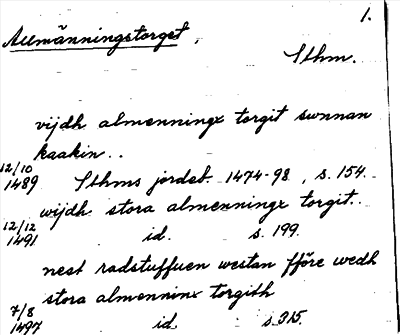 1.
Allmänningstorget,
Sthm.
vijdh almenningx torgit sunnan
kaakin..
12/10
1489 Sthms jordeb. 1474-98, s. 154.
wijdh stora almenningx torgit..
12/12
1491 id. s. 199.
nest radstuffuen westan fföre wedh
stora almenninx torgith
7/8
1497 id. s. 315.